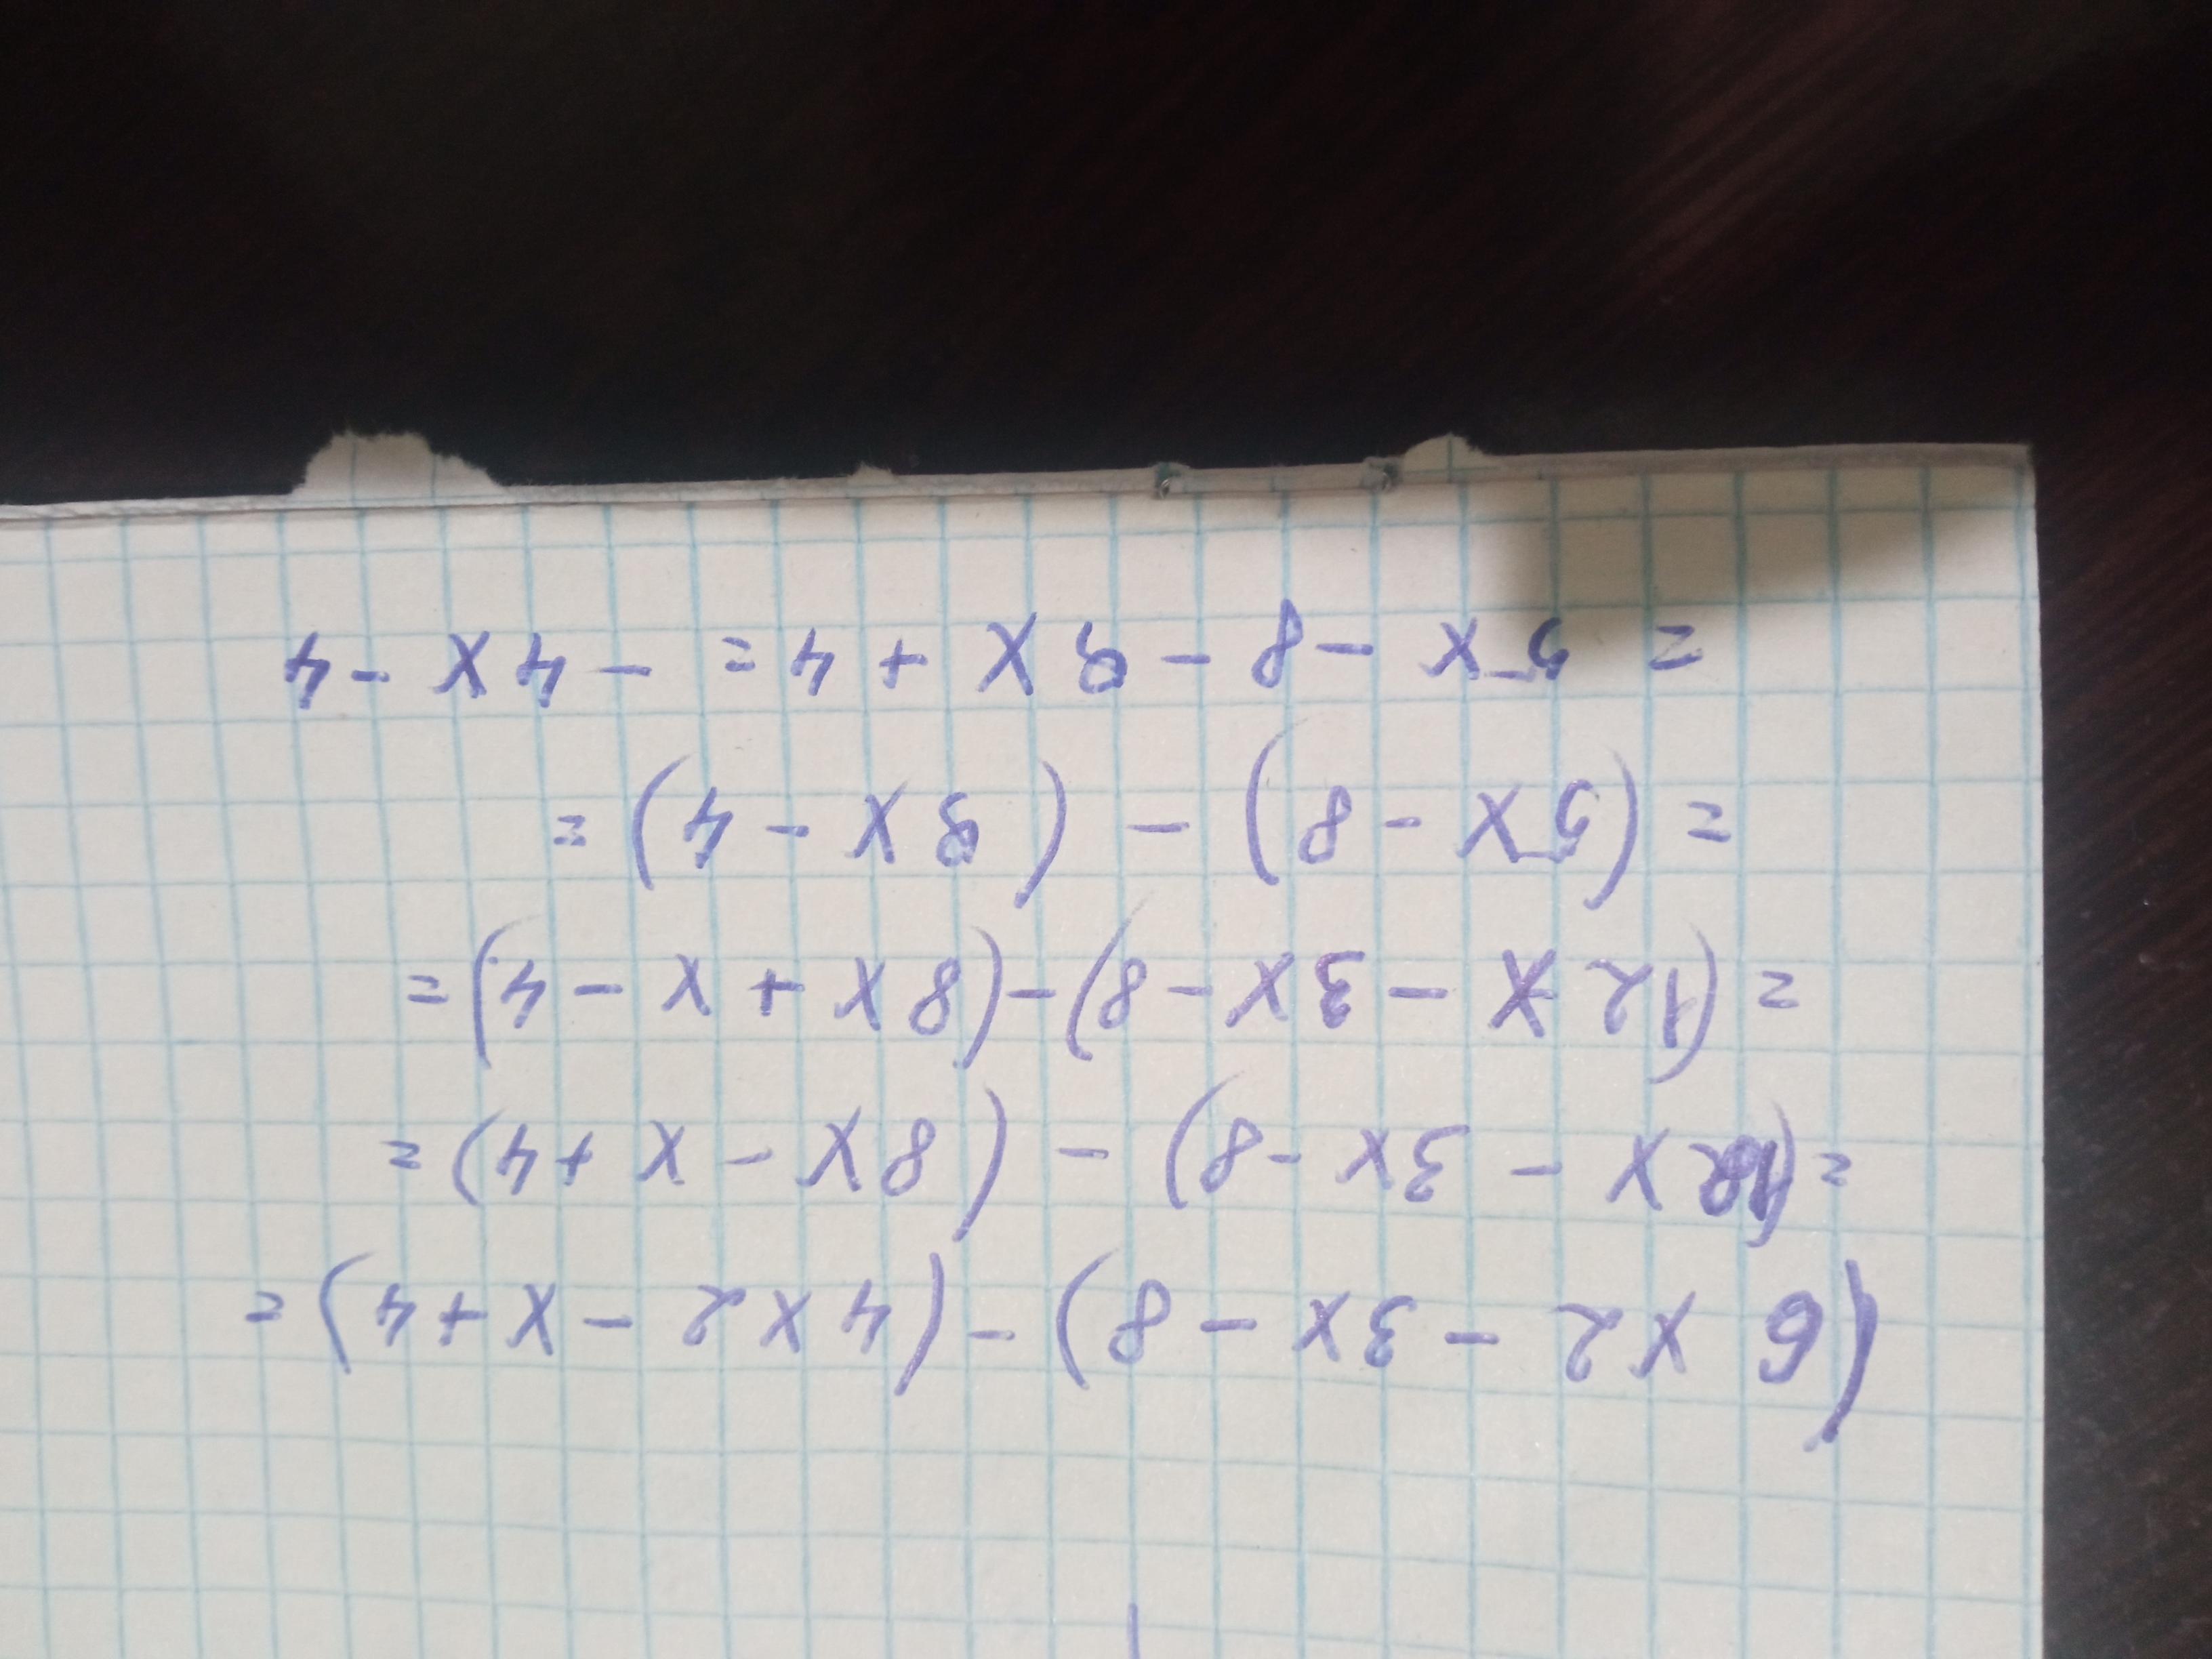 (6x2 - 3x - 8) - (4x2 - x + 4) =
= (12x - 3x - 8) - (8x - x + 4) =
= (12x - 3x - 8) - (8x + x - 4) =
= (5x - 8) - (9x - 4) =
= 5x - 8 - 9x + 4 = - 4x - 4